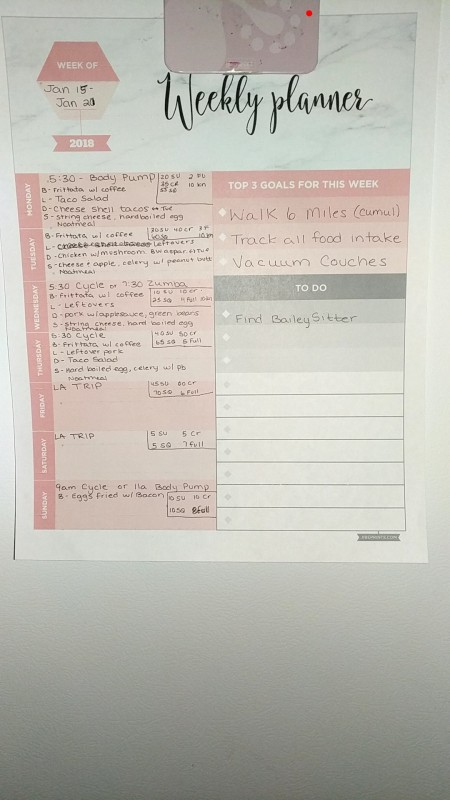 WEEK OF
Jan 15-
Jan 21
2018
Weekly planner
MONDAY
5:30 - Body Pump
20 SU 2 PU
25 CR 10 kn
55 SQ
B- Frittata w/ coffee
L- Taco Salad
D- Cheese shell tacos
S- String cheese, hardboiled egg
Noatmeal
TUESDAY
B- Frittata w/ coffee
30 SU 40 cr 3 F
L- Leftovers
D- Chicken w/mushroom
S- cheese & apple, celery w/ peanut butt
Noatmeal
WEDNESDAY
5:30 Cycle or 7:30 Zumba
B- Frittata w/ coffee
L- Leftovers
D- pork w/applesauce, green beans
S- String cheese, hard boiled egg
Noatmeal
THURSDAY
5:30 Cycle
40 SU 50 cr
65 SQ 5 Full
B- Frittata w/ coffee
L- Leftover pork
D- Taco Salad
S- Hard boiled egg, celery w/ pb
Noatmeal
FRIDAY
LA TRIP
45 SU 60 Cr
70 SQ 6 Full
SATURDAY
LA TRIP
5 SU 5 Cr
5 SQ 7 full
SUNDAY
9am Cycle or 11a Body Pump
B- Eggs fried w/ Bacon
10 SU 10 Cr
10 SQ 8full
TOP 3 GOALS FOR THIS WEEK
Walk 6 Miles (cumul)
Track all food intake
Vacuum Couches
TO DO
Find Bailey Sitter